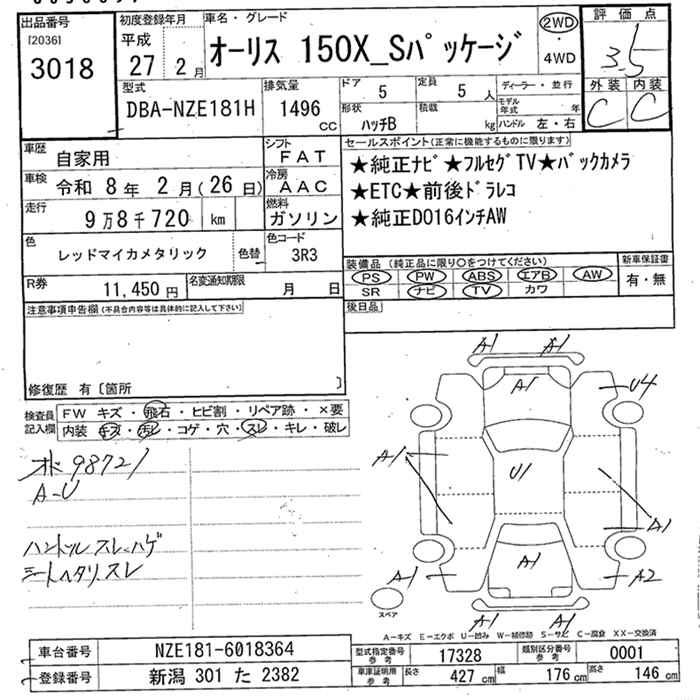 出品番号
[2036]
3018
初度登録年月
平成
27年 2月
車名・グレード
オーリス 150X_Sパッケージ
2WD
・
4WD
評価点
3.5
外装 内装
C C
型式
DBA-NZE181H
排気量
1496 cc
ドア 5
定員 5 人
形状 ハッチB
積載 kg
ディーラー・並行
モデル年式 年
ハンドル 左・右
車歴 自家用
シフト FAT
車検 令和 8年 2月(26日)
冷房 AAC
走行 9万8千720 km
燃料 ガソリン
色 レッドマイカメタリック
色替
色コード 3R3
R券 11,450 円
名変通知期限 月 日
セールスポイント(正常に機能するものに限ります)
★純正ナビ★フルセグTV★バックカメラ
★ETC★前後ドラレコ
★純正DO16インチAW
装備品(純正品に限り○をつけてください)
PS PW ABS エアB AW
SR ナビ TV カワ
新車保証書
有・無
後日品
注意事項申告欄(不具合内容等は具体的に記入して下さい)
修復歴 有〔箇所 〕
検査員記入欄
FW キズ・飛石・ヒビ割・リペア跡・×要
内装 キズ・汚レ・コゲ・穴・スレ・キレ・破レ
98721
A-U
ハンドル スレ・ハゲ
シートヘタリ、スレ
A1 A1
A1
U4
A1
U1
A1
A1
A1
A2
A1 A1
スペア
A-キズ E-エクボ U-凹み W-補修跡 S-サビ C-腐食 XX-交換済
車台番号 NZE181-6018364
登録番号 新潟 301 た 2382
型式指定番号 参考 17328
類別区分番号 参考 0001
車庫証明用 参考 長さ 427 cm 幅 176 cm 高さ 146 cm